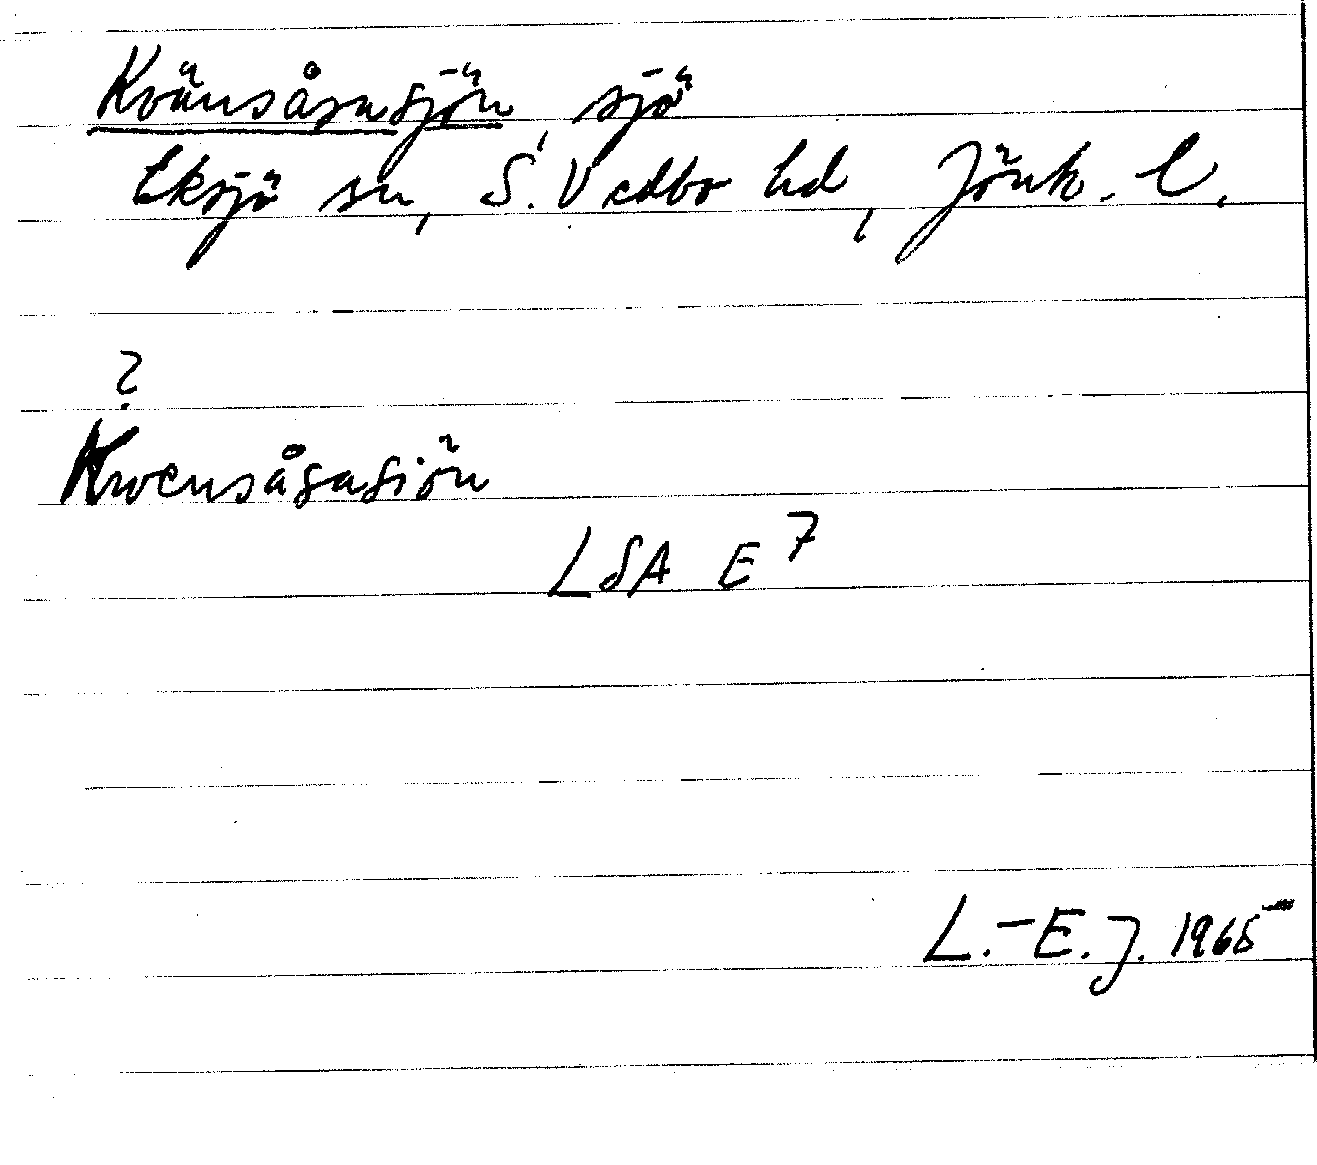 Kvänsåsasjön, sjö
Eksjö sn, S. Vedbo hd, Jönk. l.
?
Kwensåsasiön
LSA E 7
L.-E. J. 1965